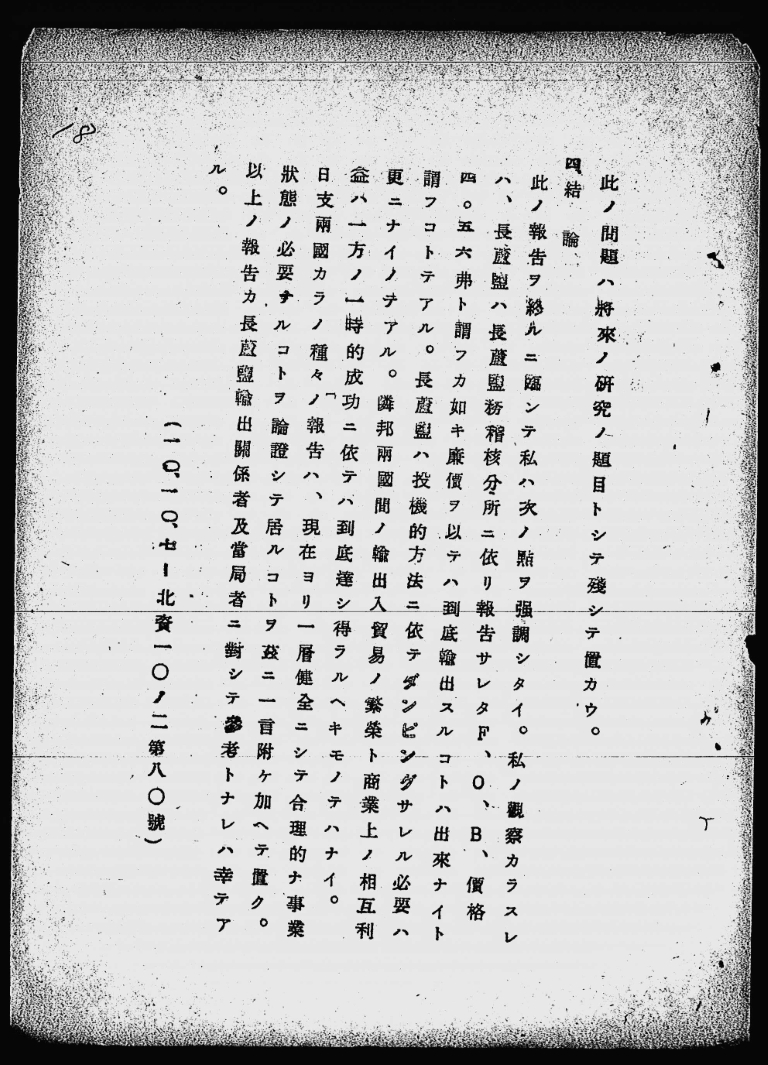 18
此ノ問題ハ將來ノ研究ノ題目トシテ殘シテ置カウ。
四、結論
此ノ報告ヲ終ルニ臨ンテ私ハ次ノ點ヲ强調シタイ。私ノ觀察カラスレ
ハ、長蘆鹽ハ長蘆鹽務稽核分所ニ依リ報告サレタF、O、B、價格
四。五六弗ト謂フカ如キ廉價ヲ以テハ到底輸出スルコトハ出來ナイト
謂フコトテアル。長蘆鹽ハ投機的方法ニ依テダンピングサレル必要ハ
更ニナイノテアル。隣邦兩國間ノ輸出入貿易ノ繁榮ト商業上ノ相互利
益ハ一方ノ一時的成功ニ依テハ到底達シ得ラルヘキモノテハナイ。
日支兩國カラノ種々ノ報告ハ、現在ヨリ一層健全ニシテ合理的ナ事業
狀態ノ必要ナルコトヲ論證シテ居ルコトヲ茲ニ一言附ケ加ヘテ置ク。
以上ノ報告カ長蘆鹽輸出關係者及當局者ニ對シテ參考トナレハ幸テア
ル。
(一〇、一〇、七ー北資一〇ノ二第八〇號)